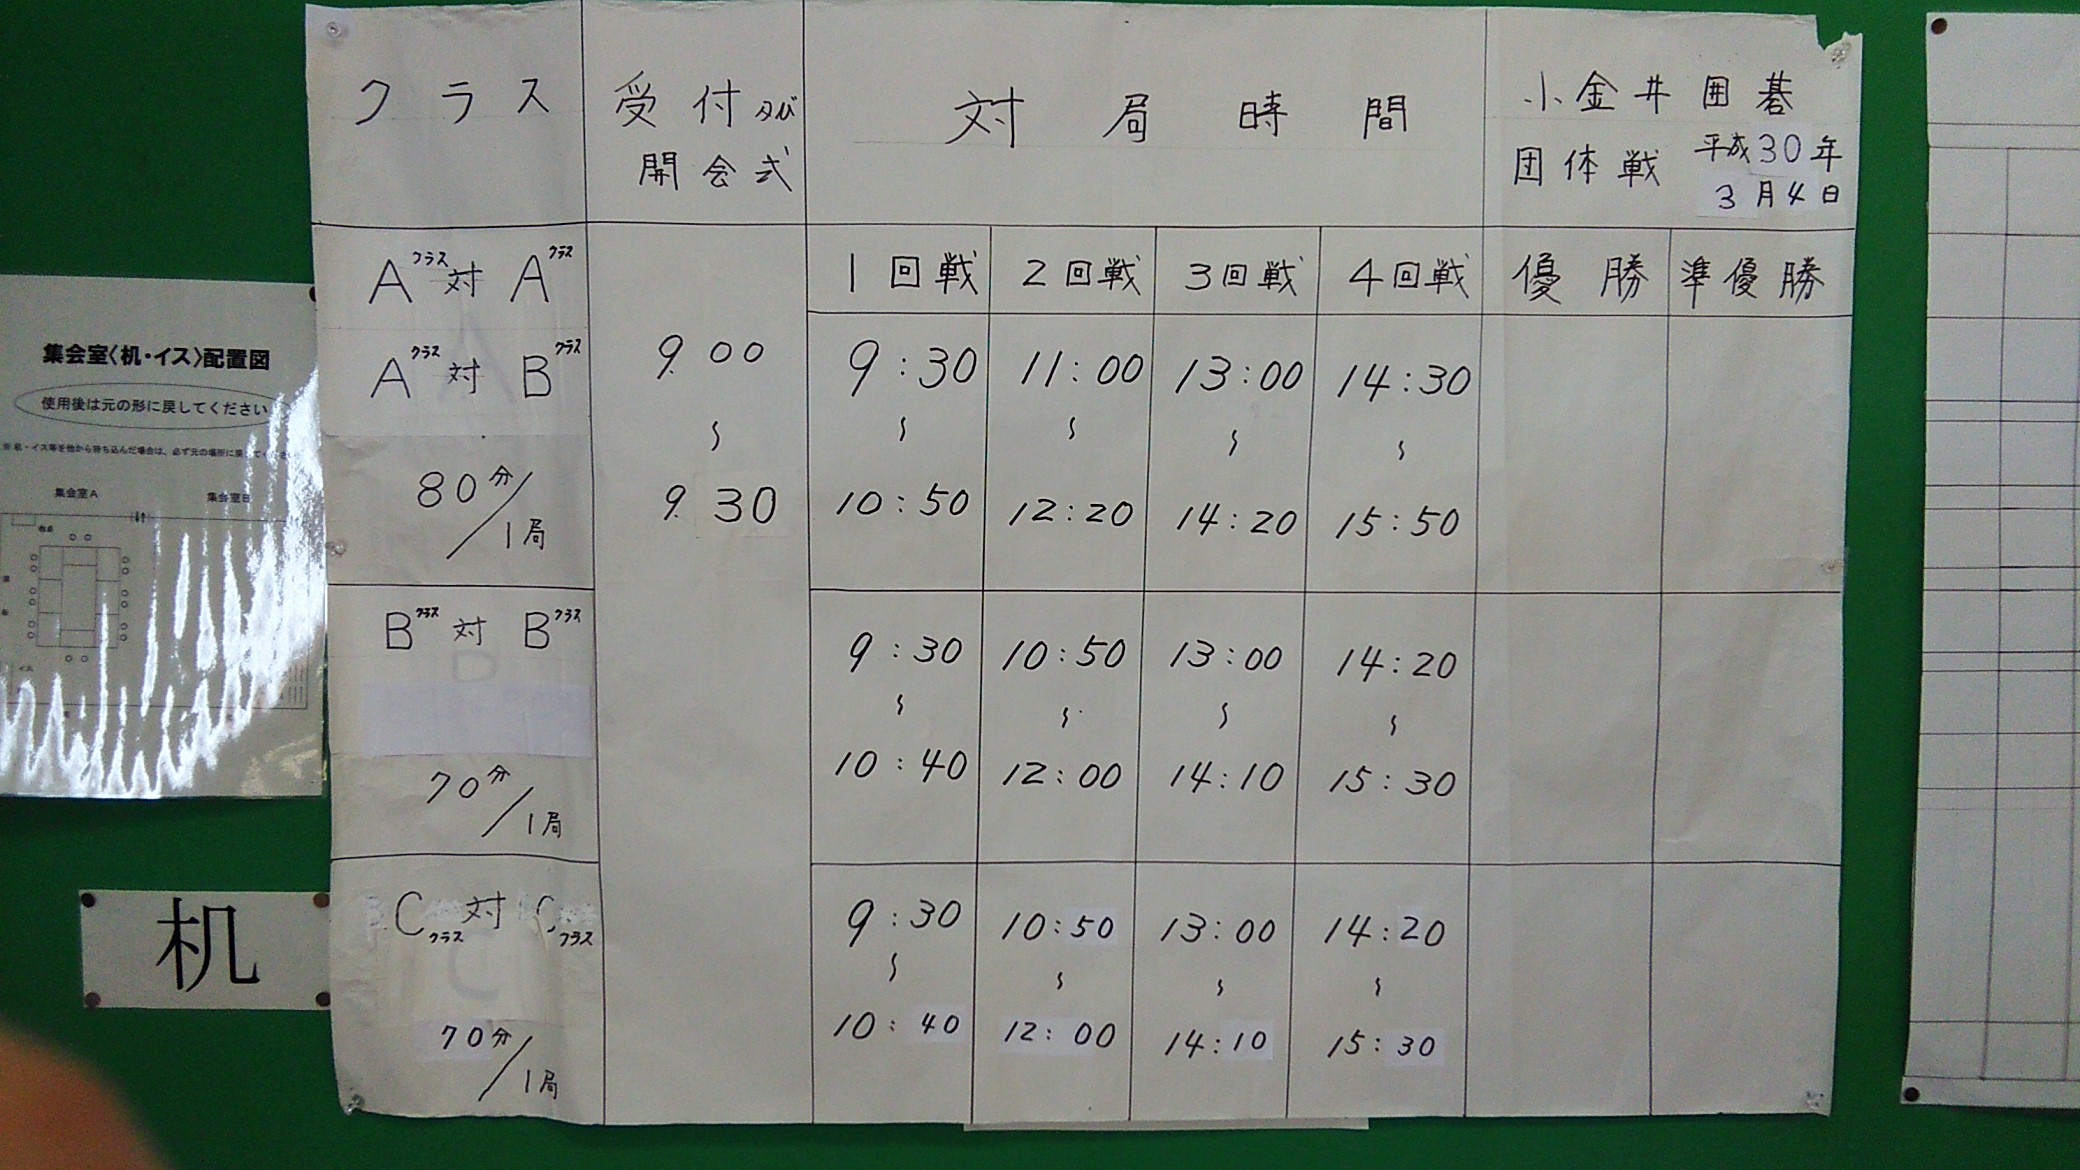 クラス
受付及び
開会式
対局時間
小金井囲碁
団体戦 平成30年
3月4日
Aクラス対Aクラス
Aクラス対Bクラス
80分/1局
9.00
〜
9.30
1回戦 2回戦 3回戦 4回戦 優勝 準優勝
9:30 11:00 13:00 14:30
〜 〜 〜 〜
10:50 12:20 14:20 15:50
Bクラス対Bクラス
70分/1局
9:30 10:50 13:00 14:20
〜 〜 〜 〜
10:40 12:00 14:10 15:30
Cクラス対Cクラス
70分/1局
9:30 10:50 13:00 14:20
〜 〜 〜 〜
10:40 12:00 14:10 15:30
集会室〈机・イス〉配置図
使用後は元の形に戻してください
※机・イス等を他から持ち込んだ場合は、必ず元の場所に戻して
集会室A 集会室B
机